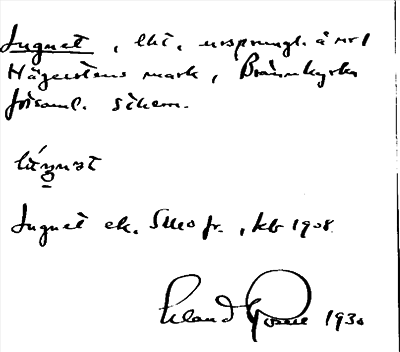 Lugnet, lht, ursprungl. å nr 1
Hägerstens mark, Brännkyrka
församl. Sthlm.
lúŋnət
Lugnet ek. Smo fr., kb 1908.
Eland 1930